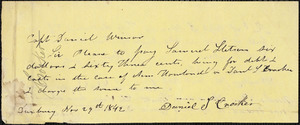 Capt Daniel
Sir Please to pay Samuel Stetson six
dollars & sixty three cents, being for debt &
costs in the case of vs Daniel S Crooker
& charge the same to me
Duxbury Nov 29th 1842
Daniel S Crooker